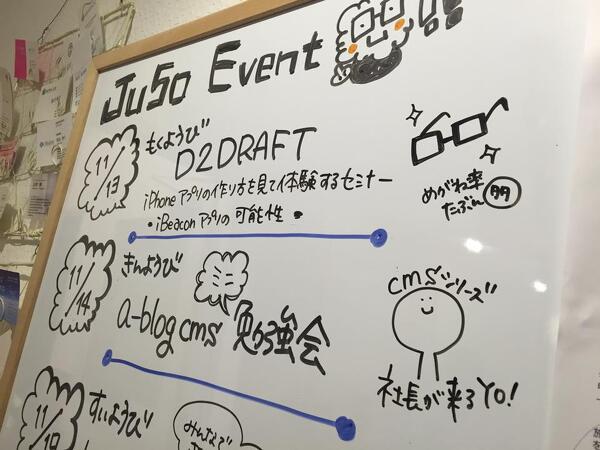 JuSo Event!!
11/13
もくようび
D2DRAFT
iPhoneアプリの作り方を見て体験するセミナー
・iBeaconアプリの可能性・
めがね率
たぶん多
11/14
きんようび
ミニ
a-blog cms 勉強会
cmsシリーズ
社長が来るYO!
すいようび
みんなで